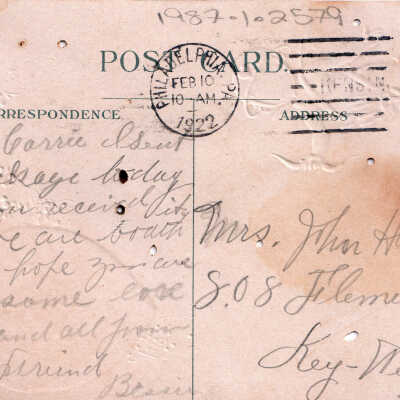 1987.1.2579
POST CARD.
PHILADELPHIA, PA
FEB 10
10-AM.
1922
RRESPONDENCE
ADDRESS
Carrie I sent
today
received it
are both
hope you are
some
and all from
friend
Bessie
Mrs. John H
808 Fleme
Key-We